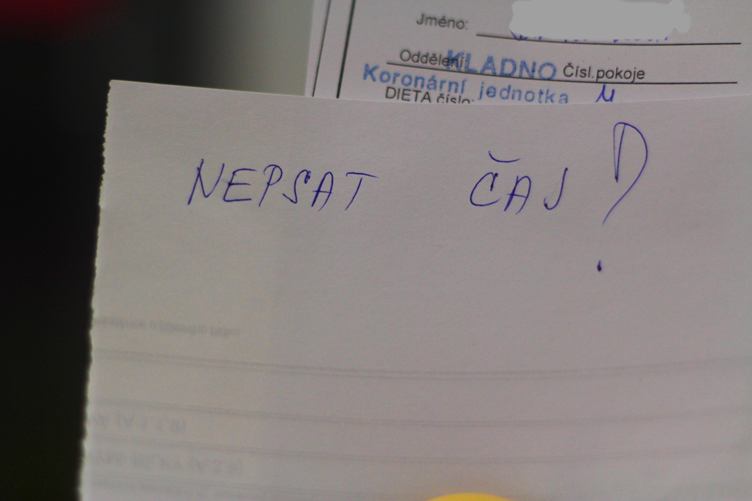 Jméno:
Oddělení KLADNO Čísl.pokoje
Koronární jednotka
DIETA číslo:
NEPSAT ČAJ!